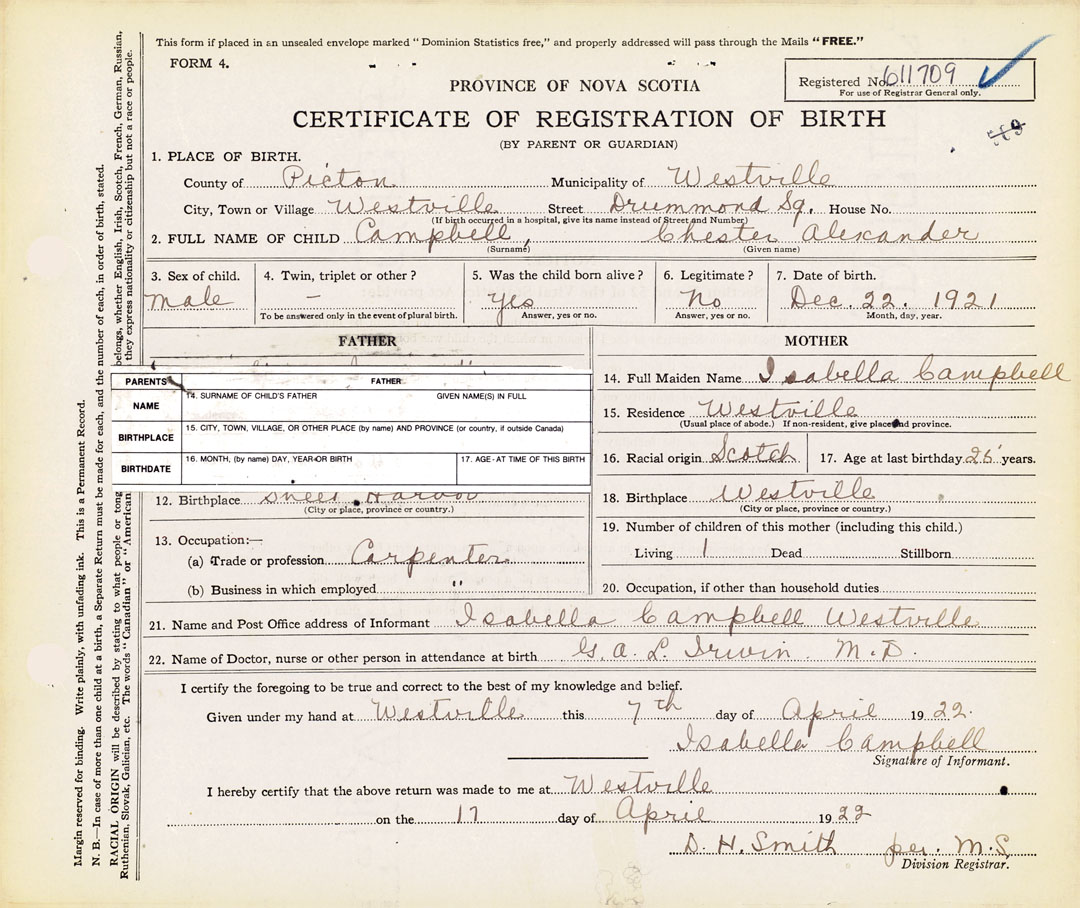 This form if placed in an unsealed envelope marked "Dominion Statistics free," and properly addressed will pass through the Mails "FREE."
FORM 4.
Registered No. 611709
For use of Registrar General only.
PROVINCE OF NOVA SCOTIA
CERTIFICATE OF REGISTRATION OF BIRTH
(BY PARENT OR GUARDIAN)
1. PLACE OF BIRTH.
County of Pictou Municipality of Westville
City, Town or Village Westville Street Drummond Sq. House No.
(If birth occurred in a hospital, give its name instead of Street and Number)
2. FULL NAME OF CHILD Campbell, Chester Alexander
(Surname) (Given name)
3. Sex of child. 4. Twin, triplet or other? 5. Was the child born alive? 6. Legitimate? 7. Date of birth.
male – Yes No Dec. 22. 1921
To be answered only in the event of plural birth. Answer, yes or no. Answer, yes or no. Month, day, year.
FATHER MOTHER
PARENTS FATHER
NAME 14. SURNAME OF CHILD'S FATHER GIVEN NAME(S) IN FULL
BIRTHPLACE 15. CITY, TOWN, VILLAGE, OR OTHER PLACE (by name) AND PROVINCE (or country, if outside Canada)
BIRTHDATE 16. MONTH, (by name) DAY, YEAR OR BIRTH 17. AGE - AT TIME OF THIS BIRTH
12. Birthplace Sheet Harbour
(City or place, province or country.)
13. Occupation:—
(a) Trade or profession Carpenter
(b) Business in which employed "
14. Full Maiden Name Isabella Campbell
15. Residence Westville
(Usual place of abode.) If non-resident, give place and province.
16. Racial origin Scotch 17. Age at last birthday years.
18. Birthplace Westville
(City or place, province or country.)
19. Number of children of this mother (including this child.)
Living 1 Dead Stillborn
20. Occupation, if other than household duties
21. Name and Post Office address of Informant Isabella Campbell Westville
22. Name of Doctor, nurse or other person in attendance at birth G. A. L. Irwin. M.D.
I certify the foregoing to be true and correct to the best of my knowledge and belief.
Given under my hand at Westville this 7th day of April 1922.
Isabella Campbell
Signature of Informant.
I hereby certify that the above return was made to me at Westville
on the 17 day of April 1922
D. H. Smith per. M.S.
Division Registrar.
Margin reserved for binding. Write plainly, with unfading ink. This is a Permanent Record.
N. B.—In case of more than one child at a birth, a Separate Return must be made for each, and the number of each, in order of birth, stated.
RACIAL ORIGIN will be described by stating to what people or tong belongs, whether English, Irish, Scotch, French, German, Russian,
Ruthenian, Slovak, Galician, etc. The words "Canadian" or "American they express nationality or citizenship but not a race or people.